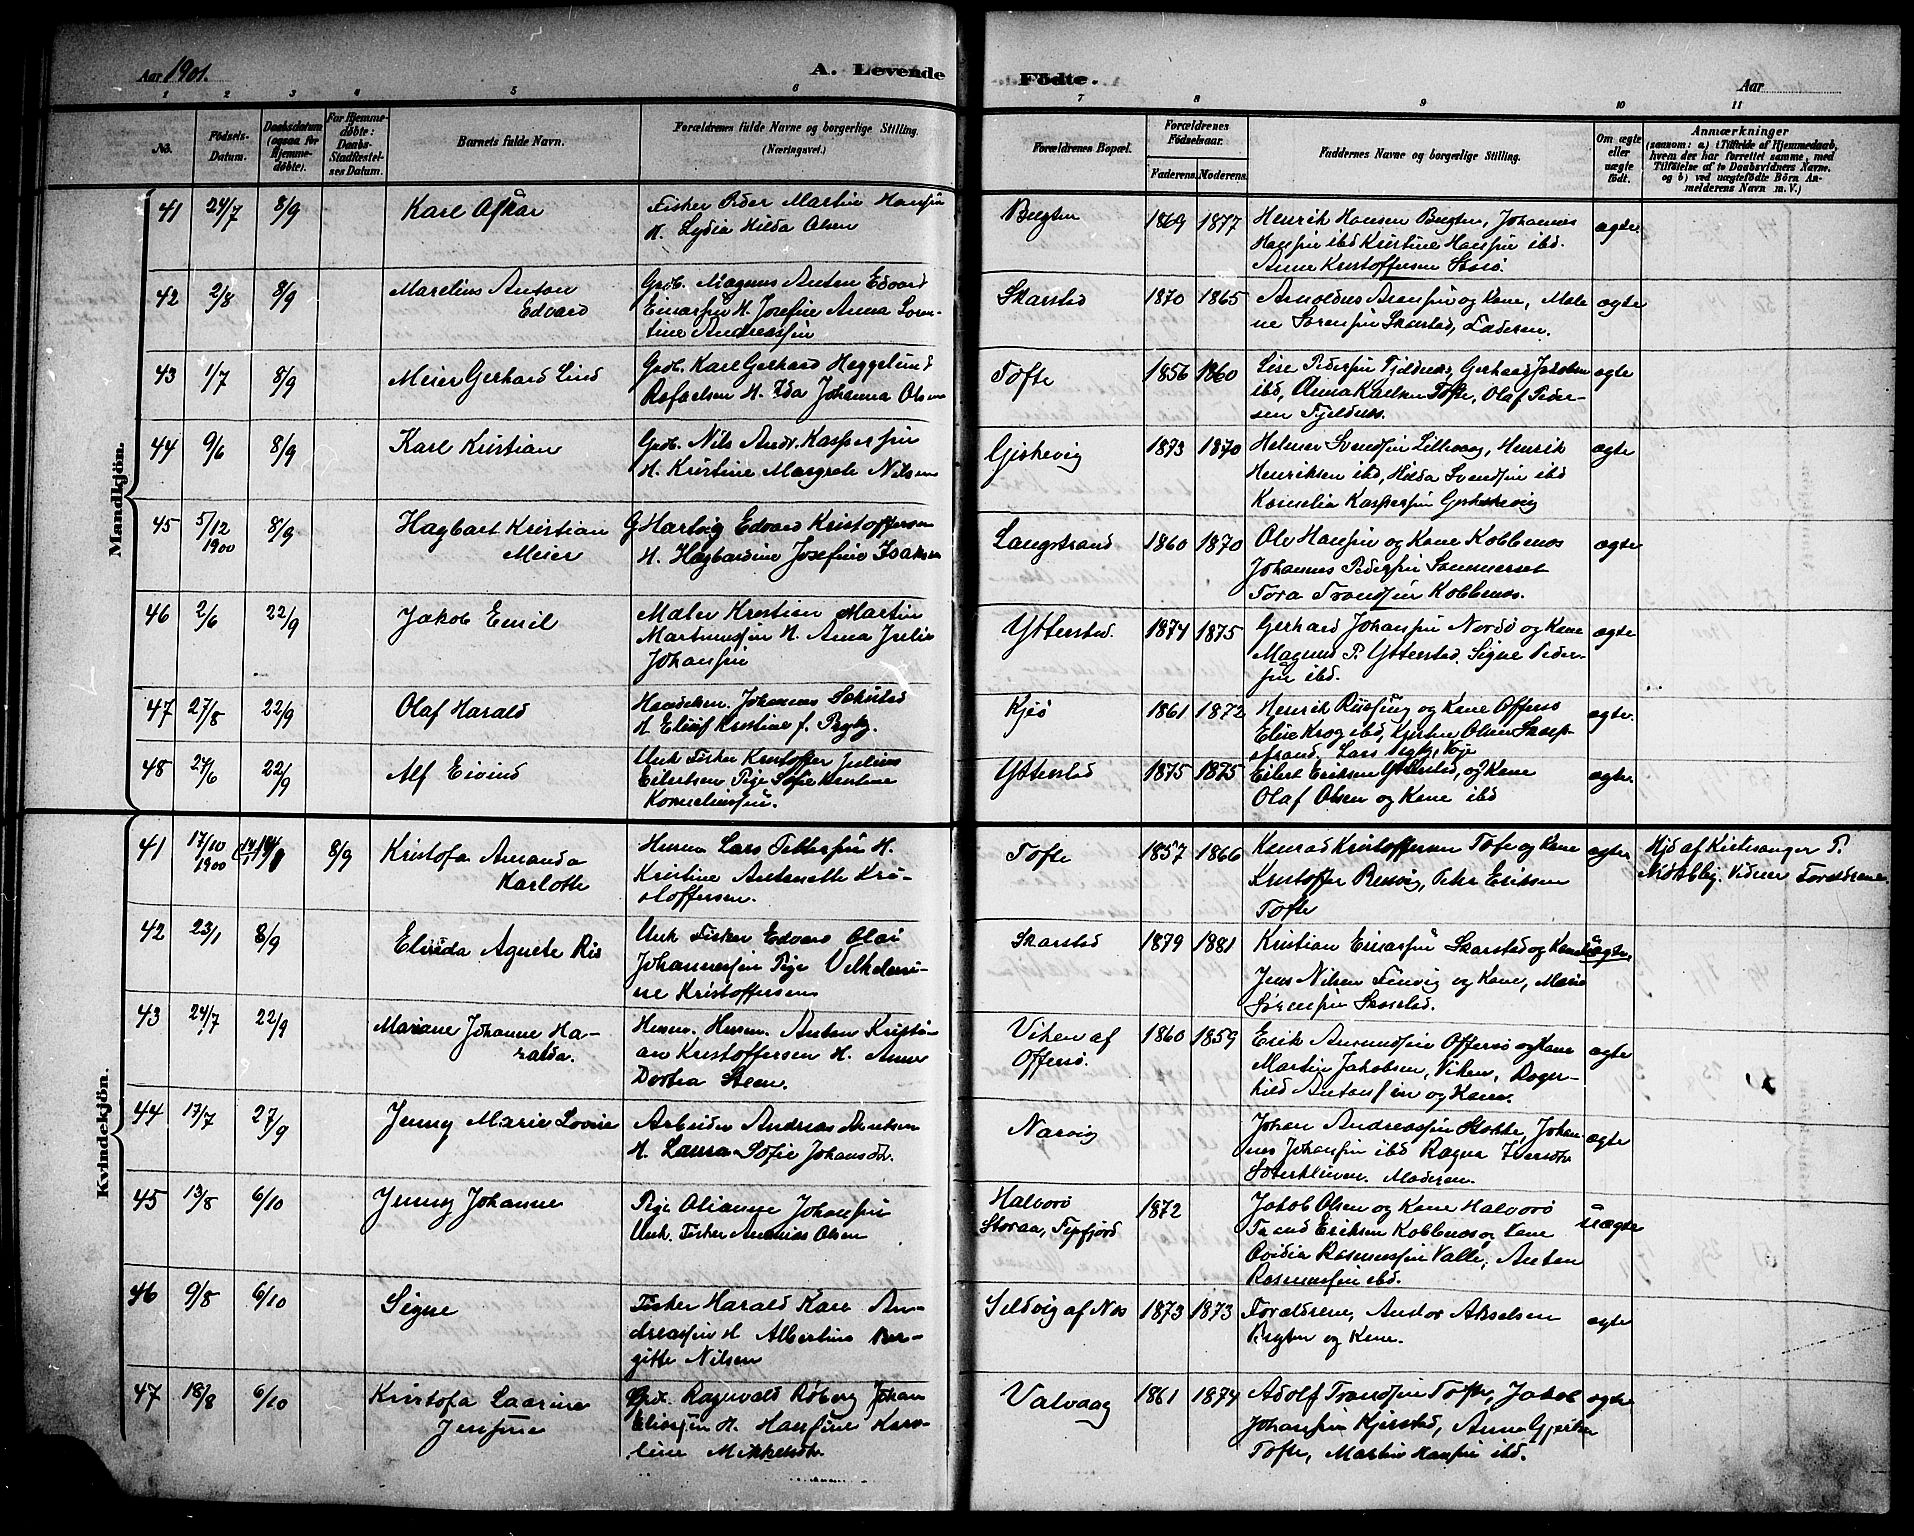 Aar 1901.
A. Levende Födte.
Aar
1 2 3 4 5 6 7 8 9 10 11
No.
Födsels-
Datum.
Daabsdatum
(ogsaa for
Hjemme-
döbte).
For Hjemme-
döbte:
Daabs-
Stadfæstel-
ses Datum.
Barnets fulde Navn.
Forældrenes fulde Navne og borgerlige Stilling.
(Næringsvei.)
Forældrenes Bopæl.
Forældrenes
Födselsaar.
Faderens. Moderens.
Faddernes Navne og borgerlige Stilling.
Om ægte
eller
uægte
födt.
Anmærkninger
(saasom: a) i Tilfælde af Hjemmedaab,
hvem der har forrettet samme, med
Tilföielse af to Daabsvidners Navne.
og b) ved uægtefödte Börn An-
melderens Navn m. V.)
Mandkjön.
41 24/7 8/9 Karl Oskar
Fisker Peder Martin Hansen
H. Lydia Hilda Olsen
Bugten 1869 1877
Henrik Hansen Bugten, Johannes
Hansen ibd Kristine Hansen ibd.
Anne Kristoffersen
ægte
42 2/8 8/9 Marelius Anton
Edvard
Gdb. Magnus Anton Edvard
Einarsen H. Josefine Anna Loren-
tine Andreassen
Skarstad 1870 1865
Arnoldus Arensen og Kone, Male
ne Sørensen Skarstad, Faderen.
ægte
43 1/7 8/9 Meier Gerhard Lind
Gdb. Karl Gerhard Heggelund
Rafaelsen H. Ida Johanna Olsen
Tofte 1856 1860
Lise Pedersen Fjeldnes, Gerhard Jakobsen
ibd, Anna Karlsen Tofte, Olaf Peder-
sen Fjeldnes.
ægte
44 9/6 8/9 Karl Kristian
Gdb. Nils Andr. Kaspersen
H. Kristine Margrete Nilsen
Gjskevig 1873 1870
Helmer Svendsen Lillevaag, Henrik
Henriksen ibd, Hilda Svendsen ibd
Kornelia Kaspersen
ægte
45 5/12 1900 8/9 Hagbart Kristian
Meier
G Hartvig Edvard Kristoffersen
H. Hagbardine Josefine Isaksen
Langstrand 1860 1870
Ole Hansen og Kone Kobbenes
Johannes Pedersen Sommerset
Tora Trondsen Kobbenes.
ægte
46 2/6 22/9 Jakob Emil
Maler Kristian Martin
Martinussen H. Anna Julie
Johansen
Ytterstad. 1874 1875
Gerhard Johansen Nordø og Kone
Magnus P. Ytterstad. Signe Peder-
sen ibd.
ægte
47 27/8 22/9 Olaf Harald
Handelsm. Johannes
H Elisif Kristine f. Rygh.
Kjeø 1861 1872
Henrik Russing og Kone Offersø
Elise Krog ibd, Kjersten Olsen Skarp-
strand, Lars
ægte.
48 24/6 22/9 Alf Eivind
Unk Fisker Kristoffer Julius
Eilertsen Pige Sofie Kristine
Korneliussen.
Ytterstad 1875 1875
Eilert Eriksen Ytterstad, og Kone
Olaf Olsen og Kone ibd
ægte.
Kvindekjön.
41 17/10 1900 8/9 Kristofa Amanda
Karlotte
Husm Lars Pettersen H.
Kristine Antonette Kri-
stoffersen.
Tofte 1857 1866
Konrad Kristoffersen Tofte og Kone
Kristoffer Rensvi, Petra Eriksen
Tofte
ægte
Hjd af Kirkesanger P.
Mørkby. Vidner Forældrene.
42 23/1 8/9 Elvida Agnete Ris
Unk Fisker Edvard Olai
Johannessen Pige Vilhelmi-
ne Kristoffersen
Skarstad 1879 1881
Kristian Einarsen Skarstad og Kone
Jens Nilsen Finvig og Kone, Marie
Sørensen Skarstad.
uægte.
43 24/7 22/9 Mariane Johanne Ha-
ralda.
Husm. Husm. Anton Kristi-
an Kristoffersen H. Anne
Dortea Steen.
Viken af
Offersø. 1860 1859
Erik Amundsen Offersø og Kone
Martin Jakobsen, Viken, Roger-
hild Antonsen og Kone.
ægte
44 17/7 27/9 Jenny Marie Lovise
Arbeider Andreas Arntsen
H. Laura Sofie Johansdt.
Narvig
Johan Andreassen Stokke, Johan
nes Johansen ibd Ragna Iversdtr
Moderen.
ægte
45 13/8 6/10 Jenny Johanne
Pige Olianne Johansen
Unk. Fisker Andreas Olsen
Halvorø
Storaa, Tepfjord 1872
Jakob Olsen og Kone Halvorø
Trond Eriksen Kobbenes og Kone
Ovidia Rasmussen Valle, Anton
Rasmussen ibd.
uægte
46 9/8 6/10 Signe
Fisker Harald Karl An-
dreassen H Albertine Ber-
gitte Nilsen
Sildvig af Nes 1873 1873
Forældrene, Andor Akselsen
Bugten og Kone.
ægte
47 18/8 6/10 Kristofa Laurine
Jensine
Gdb. Ragnvald Røberg Johan
Eliasen H. Hansine Karo-
line Mikkelsdt.
Valvaag 1861 1874
Adolf Trondsen Tofte, Jakob
Johansen Kjerstad, Anna Gjertsen
Tofte, Martin Hansen ibd.
ægte